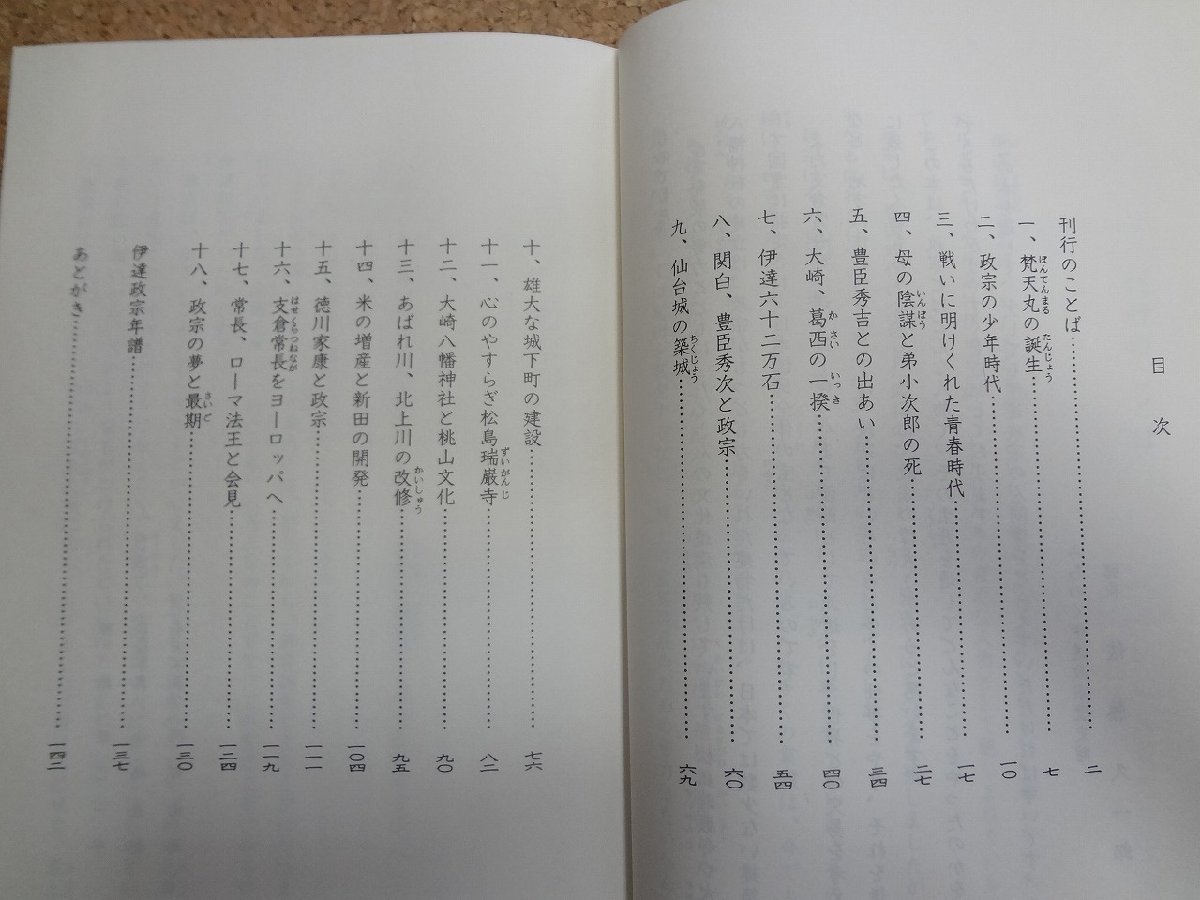 目次
刊行のことば……………………二
一、梵天丸の誕生……………………七
二、政宗の少年時代……………………一〇
三、戦いに明けくれた青春時代……………………一七
四、母の陰謀と弟小次郎の死……………………二七
五、豊臣秀吉との出あい……………………三四
六、大崎、葛西の一揆……………………四〇
七、伊達六十二万石……………………五四
八、関白、豊臣秀次と政宗……………………六〇
九、仙台城の築城……………………六九
十、雄大な城下町の建設……………………七六
十一、心のやすらぎ松島瑞巌寺……………………八二
十二、大崎八幡神社と桃山文化……………………九〇
十三、あばれ川、北上川の改修……………………九五
十四、米の増産と新田の開発……………………一〇四
十五、徳川家康と政宗……………………一一一
十六、支倉常長をヨーロッパへ……………………一一九
十七、常長、ローマ法王と会見……………………一二四
十八、政宗の夢と最期……………………一三〇
伊達政宗年譜……………………一三七
あとがき……………………一四二